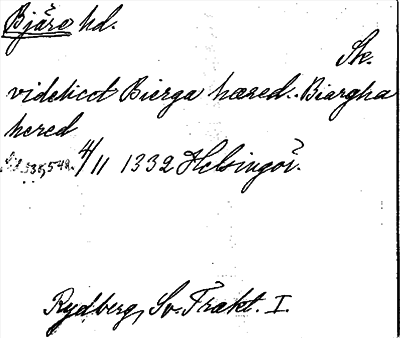 Bjäre hd.
Sk.
videlicet Bierga hæred.. Biargha
hered
4/11 1332 Helsingör.
Rydberg, Sv. Trakt. I.